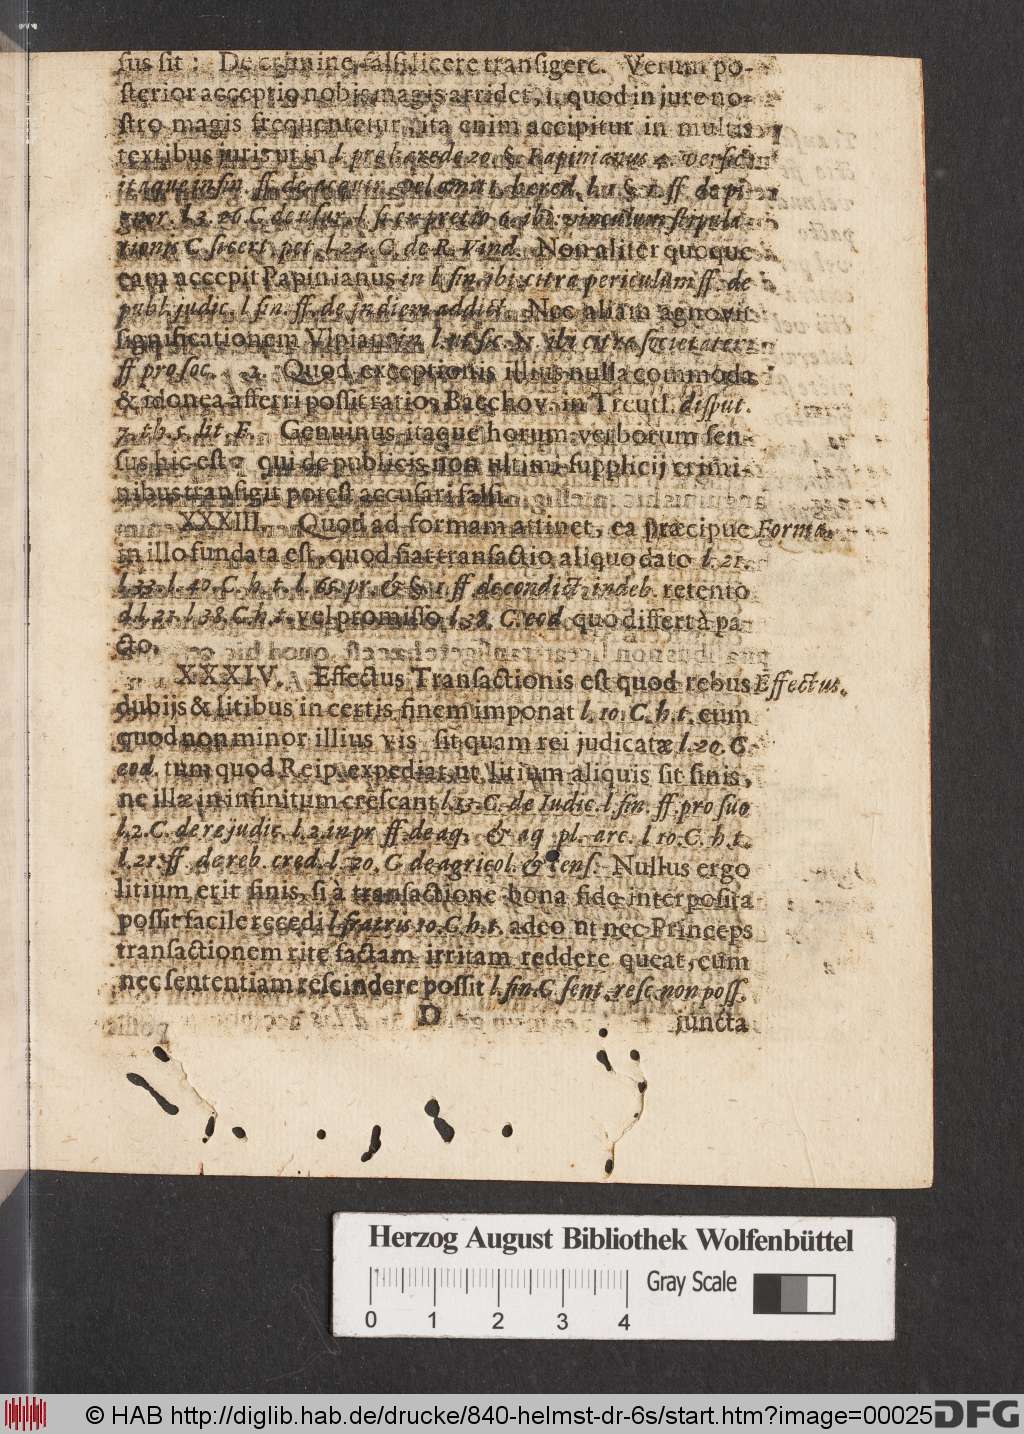 sus sit: De crimine falsi licere transigere. Verum po-
sterior acceptio nobis magis arridet, 1. quod in jure no-
stro magis frequentetur, ita enim accipitur in multis
textibus juris ut in l. prohærede 20. §. Papinianus 4. versic.
itaque in fin. ff. de acquir. vel omitt. hered. l. 11. §. 1. ff. de pi-
gnor. l. 3. C. de usur. l. si ex pretio 6. ibi: vinculum stipula-
tionis C. si cert. pet. l. 24. C. de R. Vind. Non aliter quoque
eam accepit Papinianus in l. fin. ibi: citra periculum ff. de
publ. judic. l. fin. ff. de in diem addict. Nec aliam agnovit
significationem Ulpianus ibi citra societatem
ff pro soc. 2. Quod exceptionis illius nulla commoda
& idonea afferri possit ratio, Bacchov. in Treutl. disput.
7. th. 5. lit. F. Genuinus itaque horum verborum sen-
sus hic est: qui de publicis non ultimi supplicij crimi-
nibus transigit potest accusari falsi.
XXXIII. Quod ad formam attinet, ea præcipue
Forma.
in illo fundata est, quod fiat transactio aliquo dato l. 21.
l. 33. l. 40. C. h. t. l. 65. pr. & §. 1. ff de condict. indeb. retento
d.l. 21. l 38. C. h. t. vel promisso l. 38. C. eod. quo differt à pa-
cto.
XXXIV. Effectus Transactionis est quod rebus
Effectus.
dubijs & litibus in certis finem imponat l. 10. C. h. t. cum
quod non minor illius vis sit quam rei judicatæ l. 20. C.
eod. tum quod Reip. expediat ut litium aliquis sit finis,
ne illæ in infinitum crescant l. 13. C. de Iudic. l. fin. ff. pro suo
l. 2. C. de re judic. l. 2. in pr ff. de aq. & aq pl. arc. l 10. C. h. t.
l. 21. ff. de reb. cred. l. 20. C de agricol. & cens. Nullus ergo
litium erit finis, si à transactione bona fide interposita
possit facile recedi l. fratris 10. C. h. t. adeo ut nec Princeps
transactionem rite factam irritam reddere queat, cum
nec sententiam rescindere possit l. fin. C sent. resc. non poss.
D
juncta
Herzog August Bibliothek Wolfenbüttel
Gray Scale
0 1 2 3 4
© HAB http://diglib.hab.de/drucke/840-helmst-dr-6s/start.htm?image=00025
DFG